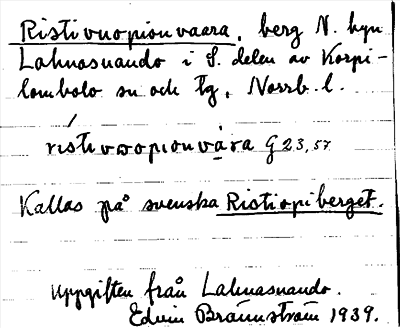 Ristivuopionvaara, berg N. byn
Lahnasuando i S. delen av Korpi-
lombolo sn och tg, Norrb. l.
ristivuopionvāra G 23, 57
Kallas på svenska Ristiopiberget.
Uppgiften från Lahnasuando.
Edvin Brännström 1939.